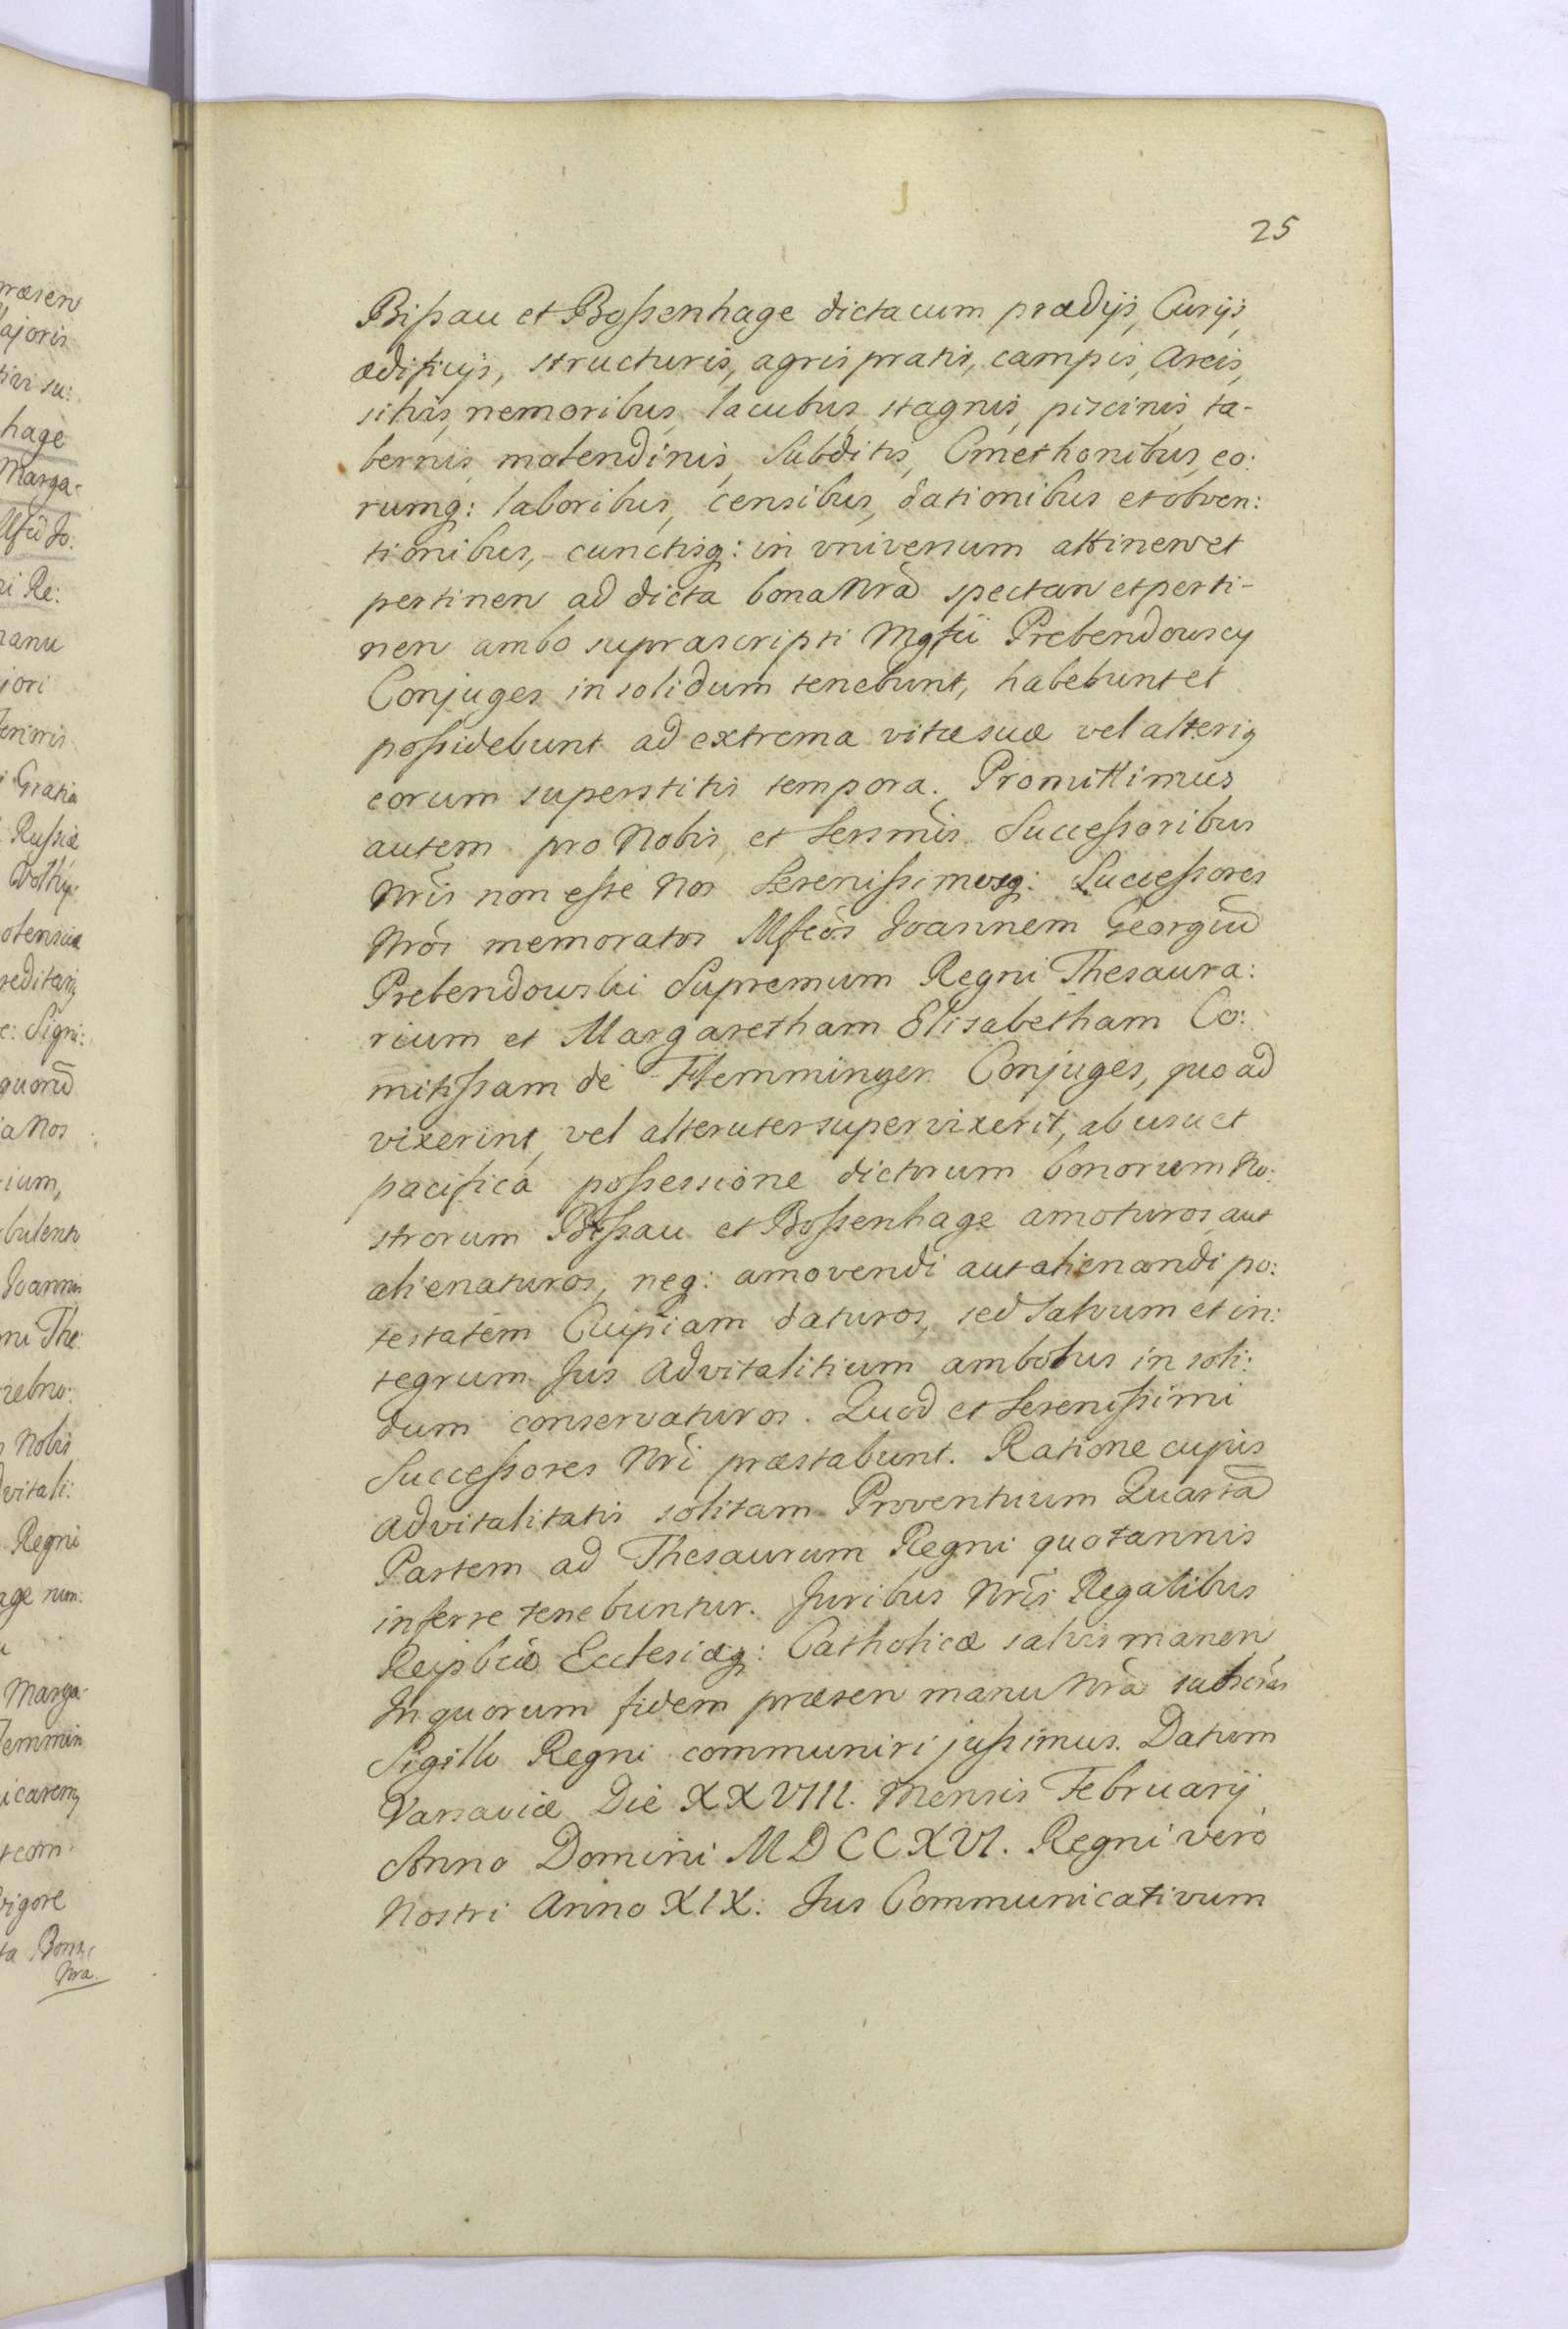 25
Bißau et Boßenhage dicta cum prædijs, Curijs,
ædificijs, structuris, agris pratis, campis, areis,
silvis, nemoribus, lacubus, stagnis, piscinis, ta-
bernis, molendinis, Subditis, Cmethonibus, eo:
rumq: laboribus, censibus, dationibus et obven:
tionibus, cunctisq: in vniversum attinen et
pertinen ad dicta bona Nrã spectan et perti-
nen ambo suprascripti Mgfci Prebendowscy
Conjuges in solidum tenebunt, habebunt et
poßidebunt ad extrema vitæ suæ vel alteriq
eorum superstitis tempora. Promittimus
autem pro Nobis, et Sersmis Succeßoribus
Nris non eße Nos Serenißimosq: Succeßores
Nrõs memoratos Mfcos Joannem Georgiũ
Prebendowski Supremum Regni Thesaura:
rium et Margaretham Elisabetham Co:
mitißam de Flemmingen Conjuges, quo ad
vixerint, vel alteruter supervixerit, ab usu et
pacificâ poßessione dictorum bonorum No:
strorum Bißau et Boßenhage amoturos, aut
alienaturos, neq: amovendi aut alienandi po:
testatem Cuipiam daturos, sed Salvum et in:
tegrum Jus Advitalitium ambobus in soli:
dum conservaturos. Quod et Serenißimi
Succeßores Nri præstabunt. Ratione cujus
Advitalitatis solitam Proventuum Quartã
Partem ad Thesaurum Regni quotannis
inferre tenebuntur. Juribus Nris Regalibus
Reipbcæ Ecclesiæq: Catholicæ salvis manen
In quorum fidem præsen manu Nrã subscras
Sigillo Regni communiri jußimus. Datum
Varsaviæ Die XXVIII. Mensis Februarij
Anno Domini MDCCXVI. Regni verò
Nostri Anno XIX: Jus Communicativum